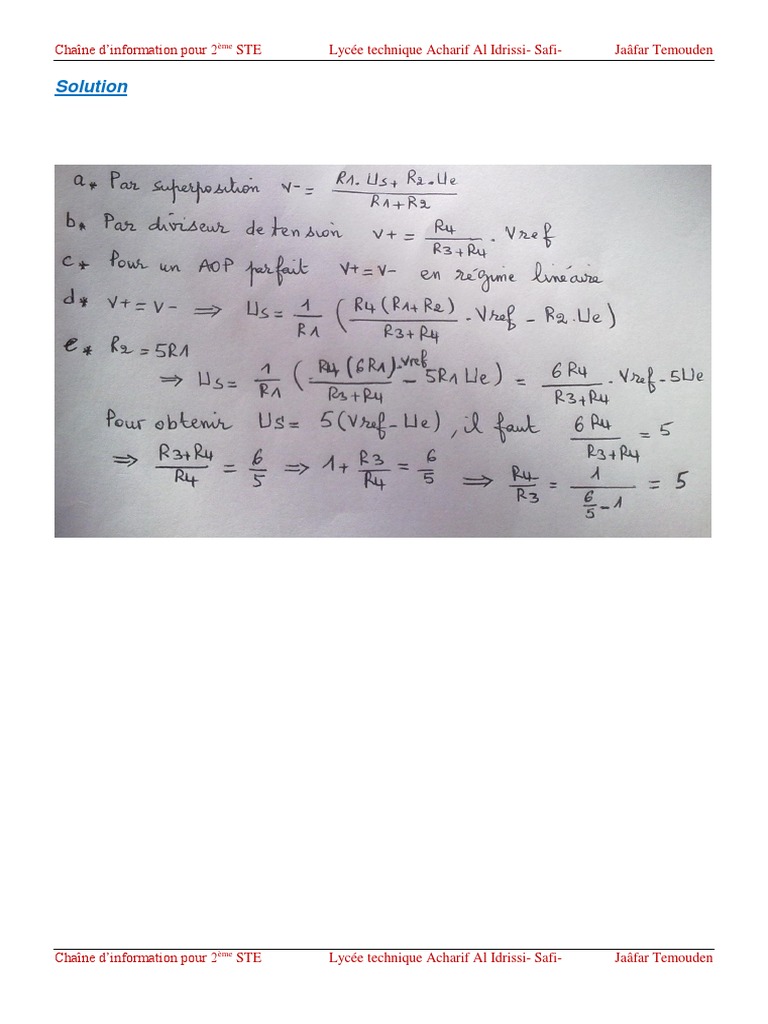 Chaîne d'information pour 2ème STE Lycée technique Acharif Al Idrissi- Safi- Jaâfar Temouden
Solution
a* Par superposition V- = (R1.Us + R2.Ue) / (R1+R2)
b* Par diviseur de tension V+ = R4 / (R3+R4) . Vref
c* Pour un AOP parfait V+ = V- en régime linéaire
d* V+ = V- ⇒ Us = 1/R1 ( R4(R1+R2) / (R3+R4) . Vref - R2.Ue )
e* R2 = 5R1
⇒ Us = 1/R1 ( R4(6R1).Vref / (R3+R4) - 5R1Ue ) = 6R4 / (R3+R4) . Vref - 5Ue
Pour obtenir Us = 5(Vref - Ue), il faut 6R4 / (R3+R4) = 5
⇒ (R3+R4) / R4 = 6/5 ⇒ 1 + R3/R4 = 6/5 ⇒ R4/R3 = 1 / (6/5 - 1) = 5
Chaîne d'information pour 2ème STE Lycée technique Acharif Al Idrissi- Safi- Jaâfar Temouden